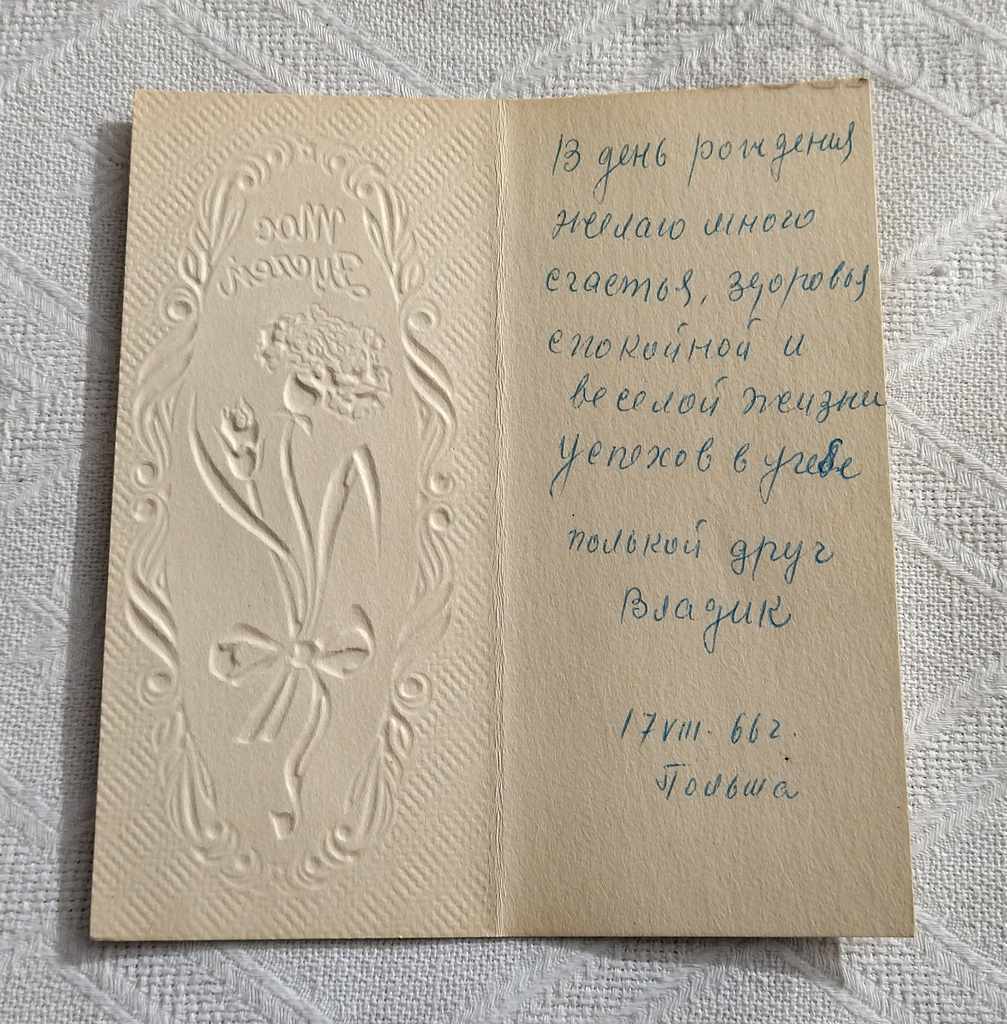 В день рождения
желаю много
счастья, здоровья
спокойной и
веселой жизни
Успехов в учебе
полькой друг
Владик
17 VIII. 66 г.
Польша